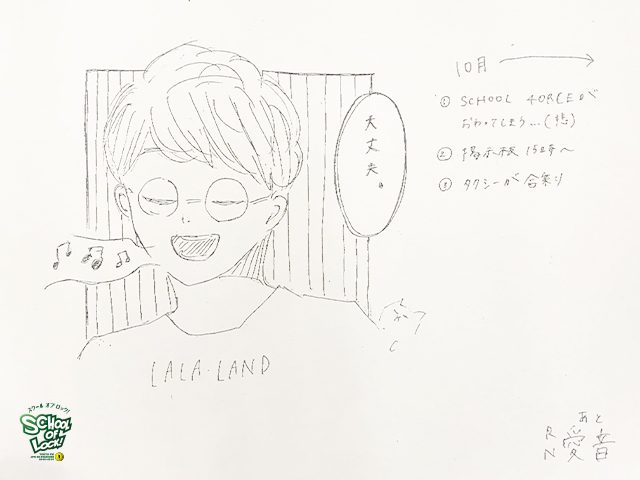 10月
① SCHOOL FORCEが
おわってしまう…(悲)
② 掲示板 15時〜
③ タクシーが合乗り
大丈夫。
LALA・LAND
スクール オブ ロック!
SCHOOL
OF
LOCK!
あと
RN 愛音